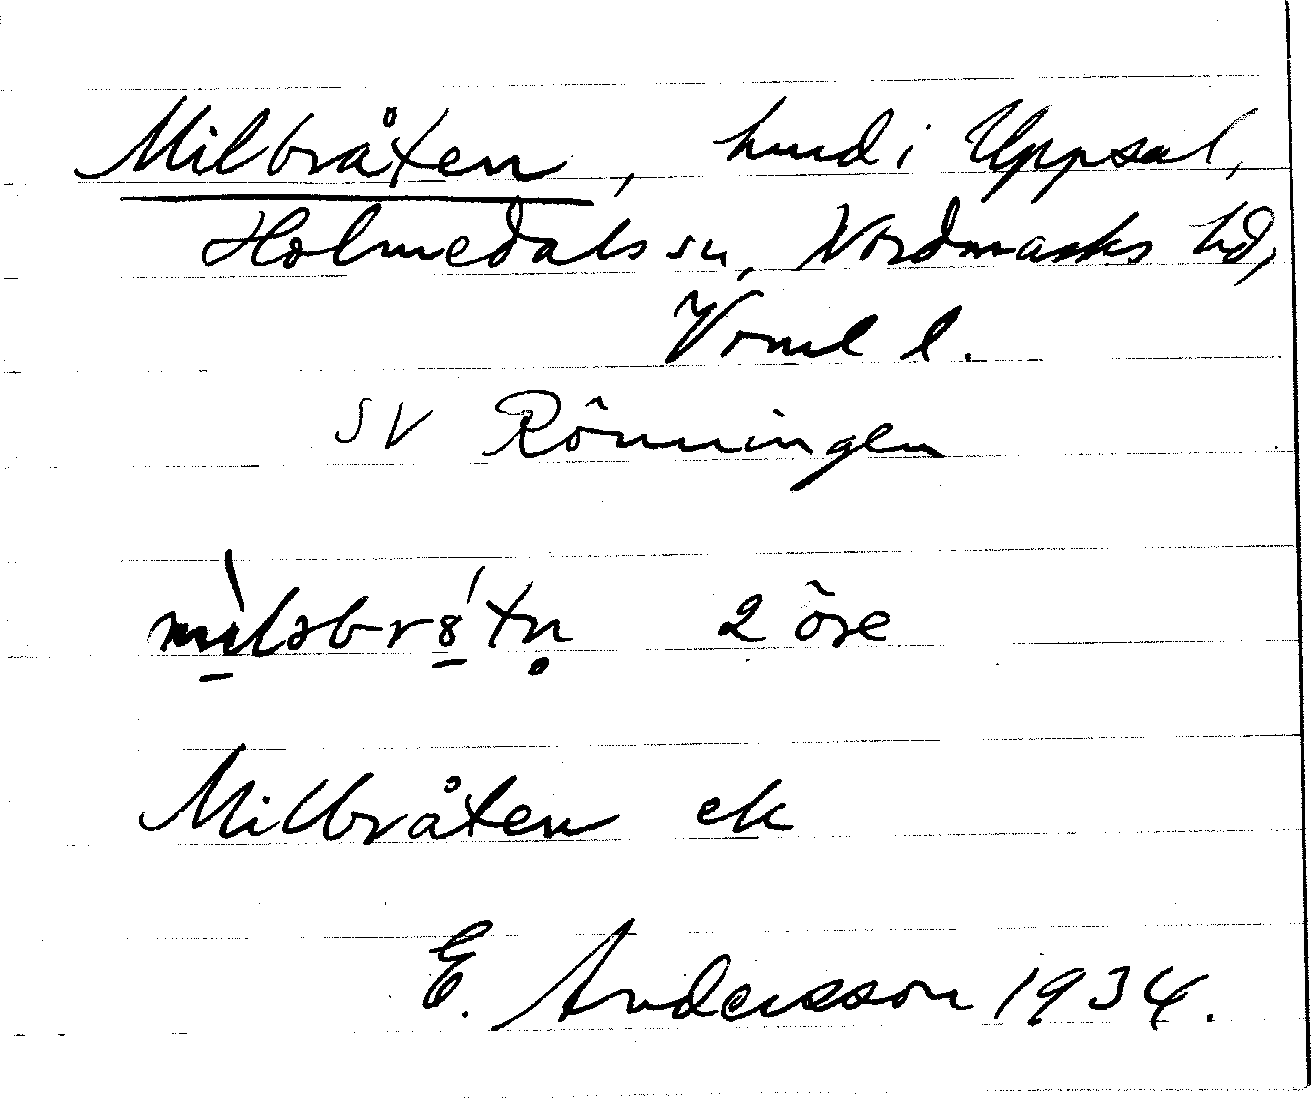 Milbråten, hmd i Uppsal,
Holmedals sn, Nordmarks hd,
Vrml l.
SV Rönningen
mìləbrát 2 öre
Milbråten ek
E. Andersson 1934.